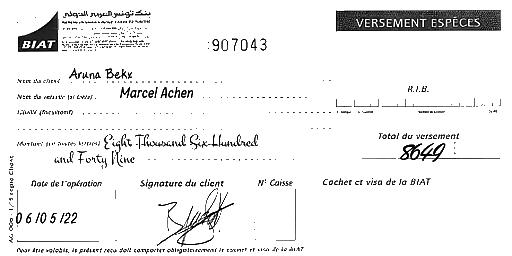 بنك تونس العربي الدولي
BIAT
VERSEMENT ESPÈCES
:907043
Nom du client Aruna Bekx
Nom du verseur (si tiers) Marcel Achen
R.I.B.
Libellé (facultatif)
Montant (en toutes lettres) Eight Thousand Six-Hundred
and Forty Nine
Total du versement
8649
Date de l'opération
Signature du client
N° Caisse
Cachet et visa de la BIAT
06/05/22
Pour être valable, le présent reçu doit comporter obligatoirement le cachet et visa de la BIAT